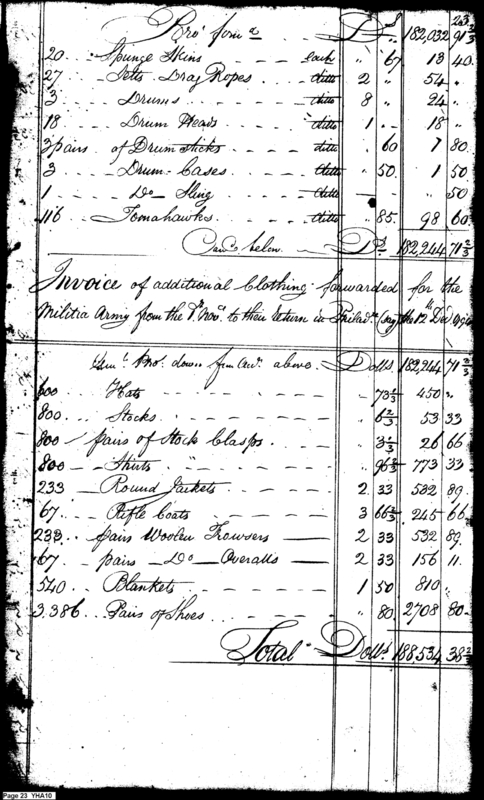 23
Bro.t forw.d Ds 182,032 91 2/3
20 Spunge Skins each " 67 13 40
27 Setts Drag Ropes ditto 2 " 54 "
3 Drums ditto 8 " 24 "
18 Drum Heads ditto 1 " 18 "
3 pairs of Drum sticks ditto " 60 7 80
3 Drum Cases ditto " 50 1 50
1 Do Sling ditto — " 50
116 Tomahawks ditto " 85 98 60
Car.d below Ds 182,244 71 2/3
Invoice of additional Clothing forwarded for the
Militia Army from the Nov.r to their return in Philad.a (say the 12th Dec
bro.t down from above Dolls 182,244 71 2/3
600 Hats " 73 1/3 450 "
800 Stocks " 6 2/3 53 33
800 pairs of Stock Clasps " 3 1/3 26 66
800 Shirts " 96 2/3 773 33
233 Round Jackets 2 33 532 89
67 Rifle Coats 3 66 2/3 245 66
233 pairs Woolen Trowsers 2 33 532 89
67 pairs Do Overalls 2 33 156 11
540 Blankets 1 50 810 "
3,386 Pairs of Shoes " 80 2708 80
Total Dolls 188,534 38 2/3
Page 23 YHA10